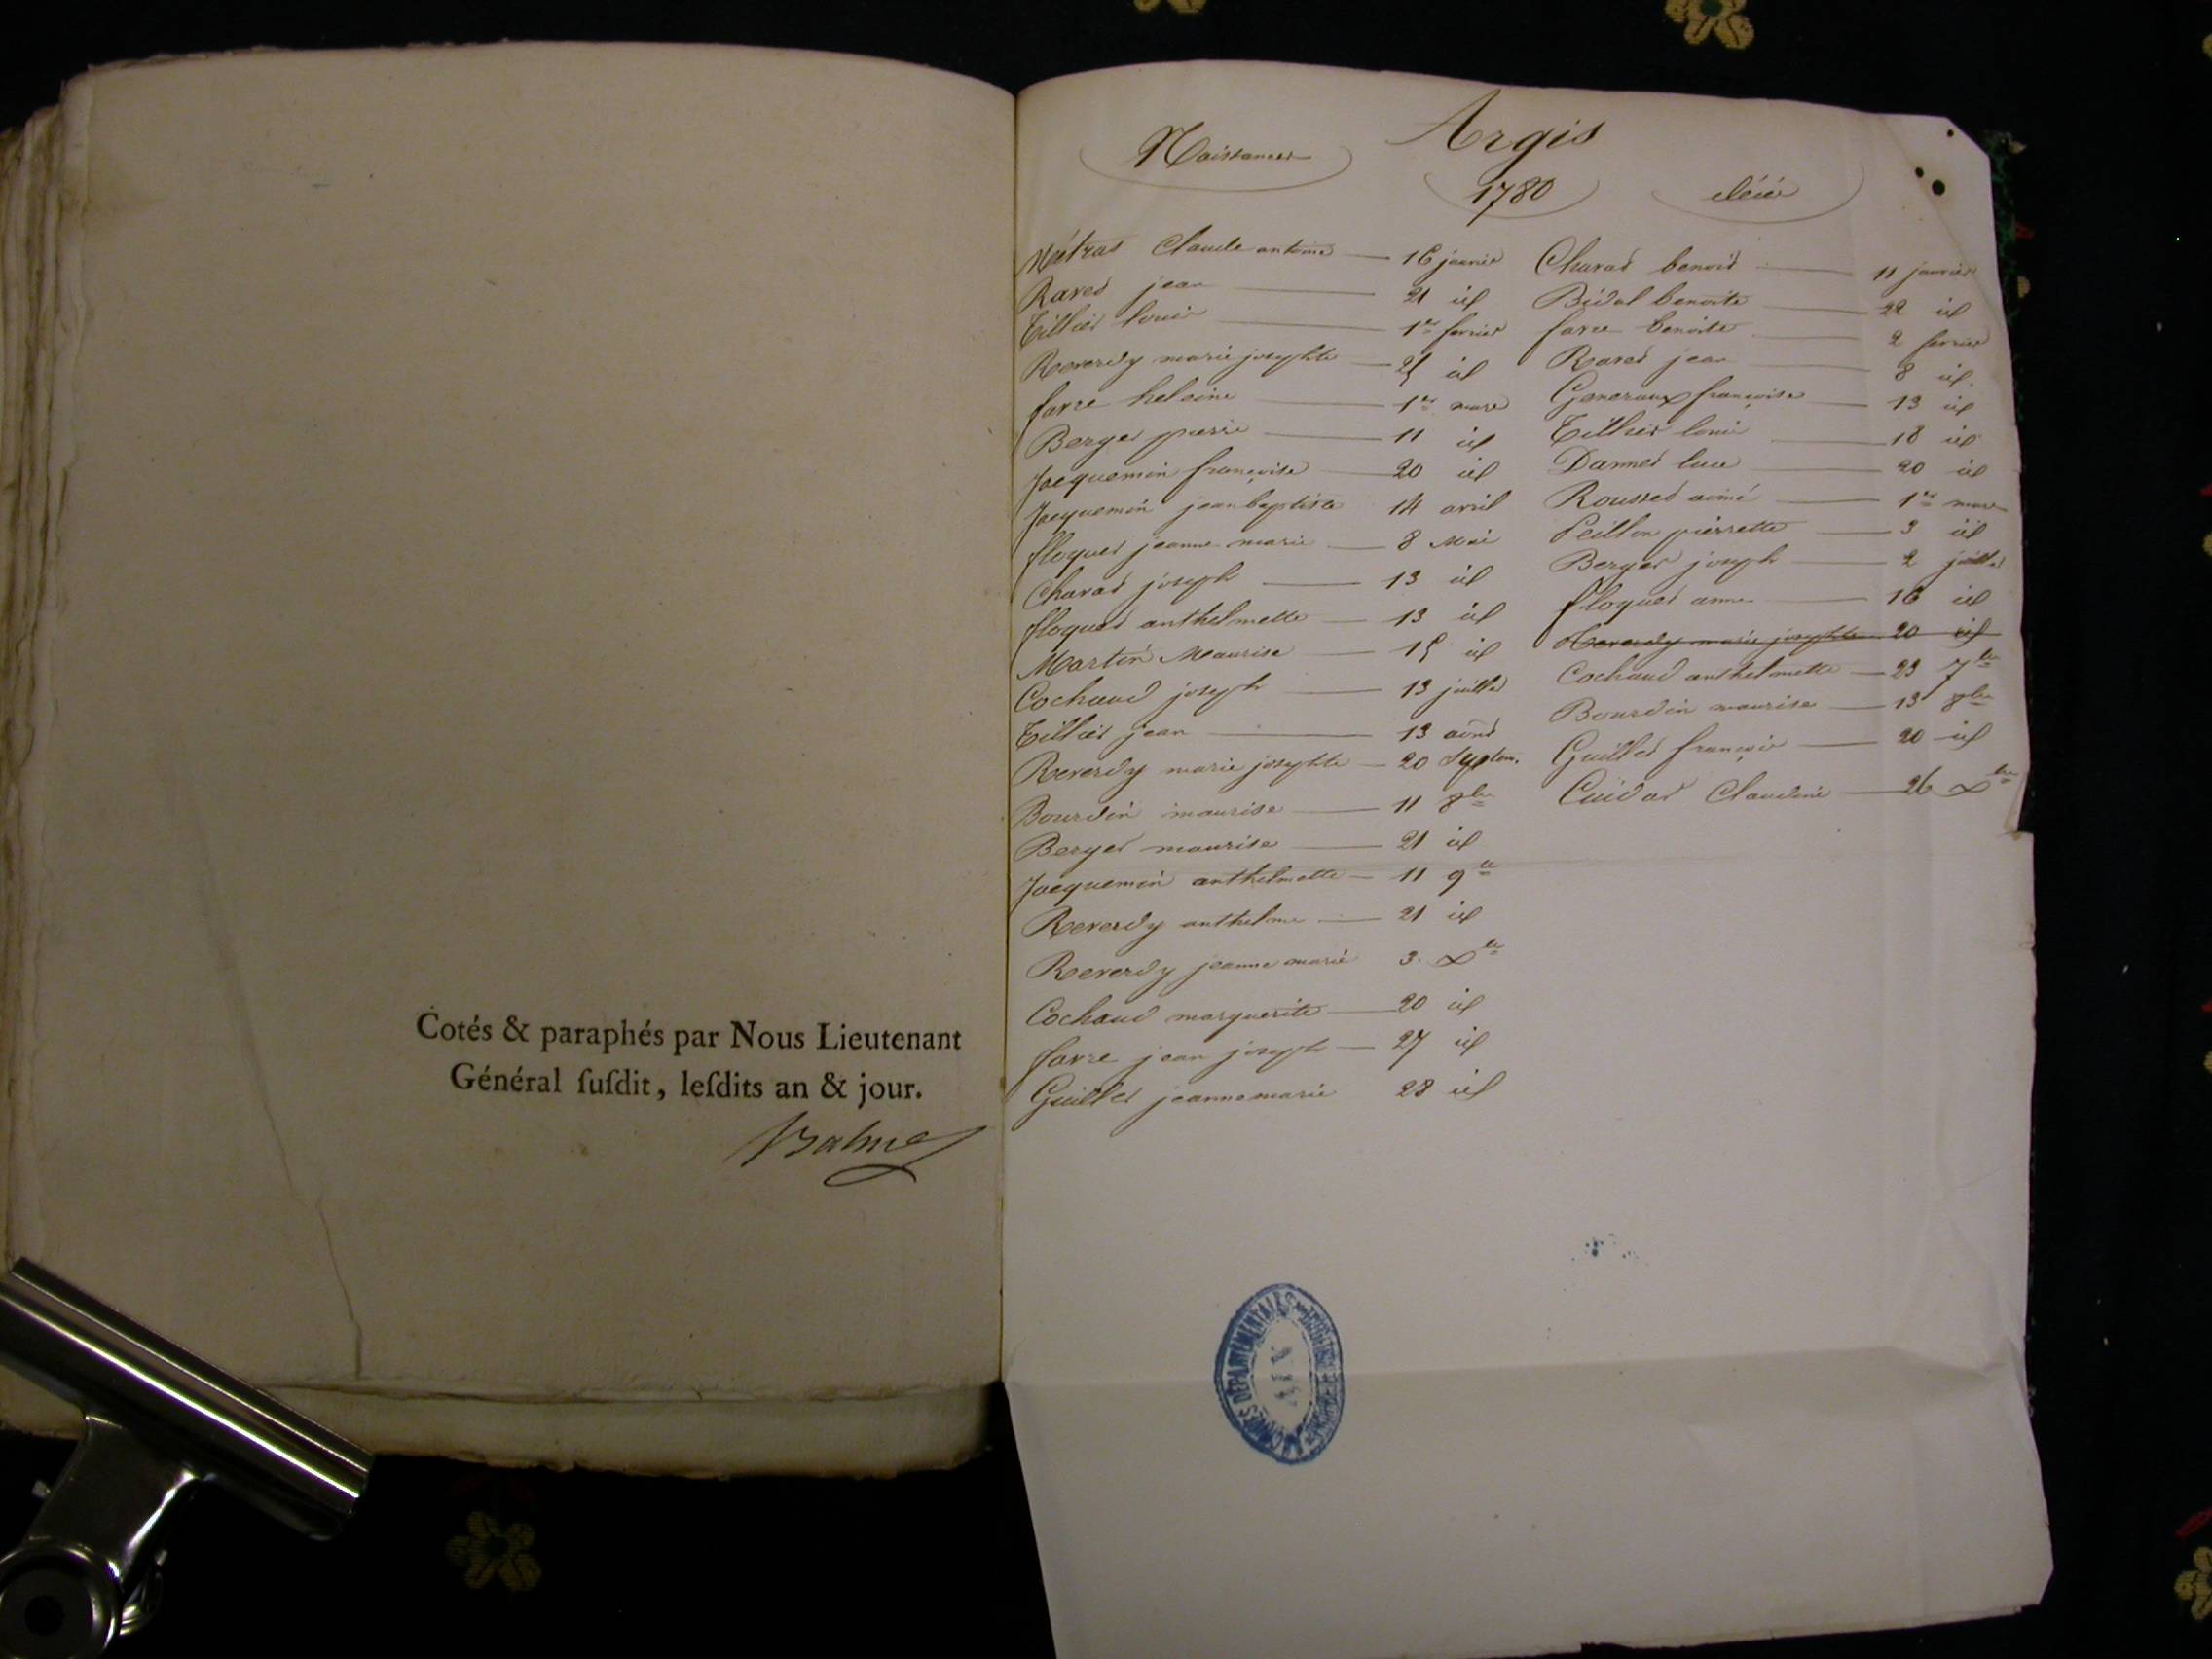 Cotés & paraphés par Nous Lieutenant
Général ſuſdit, leſdits an & jour.
Balme
Argis
Naissances
1780
décès
Métras Claude antoine — 16 janvier
Ravet jean — 21 id
Tillier louis — 1er fevrier
Reverdy marie josephte — 25 id
favre heleine — 1er mars
Berger pierre — 11 id
Jacquemin françoise — 20 id
Jacquemin jean baptiste 14 avril
floquet jeanne marie — 8 Mai
Charat joseph — 13 id
floquet anthelmette — 13 id
Martin Maurise — 15 id
Cochaud joseph — 13 juillet
Tillier jean — 13 août
Reverdy marie josephte — 20 Septem.
Bourdin maurise — 11 8bre
Berger maurise — 21 id
Jacquemin anthelmette — 11 9bre
Reverdy anthelme — 21 id
Reverdy jeanne marie 3. Xbre
Cochaud marguerite — 20 id
favre jean joseph — 27 id
Guillet jeanne marie 28 id
Charat benoit — 11 janvier
Bidal benoite — 22 id
favre benoite — 2 fevrier
Ravet jean — 8 id.
Generaux françoise — 13 id
Tillier louis — 18 id
luce — 20 id
Rousset aimé — 1er mars
Peillon pierrette — 3 id
Berger joseph — 2 juillet
floquet anne — 16 id
Reverdy marie josephte — 20 id
Cochaud anthelmette — 23 7bre
Bourdin maurise — 13 8bre
Guillet françois — 20 id
Claudine — 26 Xbre
ARCHIVES DÉPARTEMENTALES
AIN